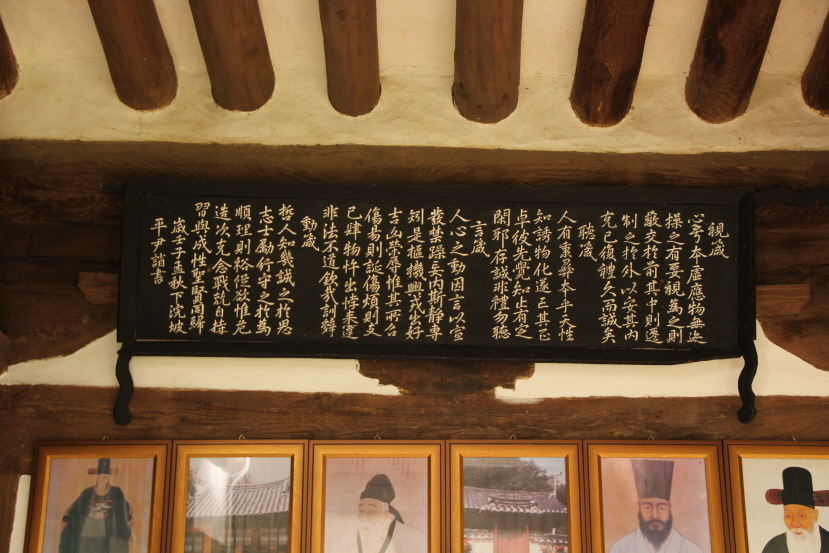 視箴
心兮本虛應物無迹
操之有要視為之則
蔽交於前其中則遷
制之於外以安其內
克己復禮久而誠矣
聽箴
人有秉彝本乎天性
知誘物化遂亡其正
卓彼先覺知止有定
閑邪存誠非禮勿聽
言箴
人心之動因言以宣
發禁躁妄內斯靜專
矧是樞機興戎出好
吉凶榮辱惟其所召
傷易則誕傷煩則支
己肆物忤出悖来違
非法不道欽哉訓辭
動箴
哲人知幾誠之於思
志士勵行守之於為
順理則裕從欲惟危
造次克念戰兢自持
習與成性聖賢同歸
歲壬子孟秋下浣坡
平尹書